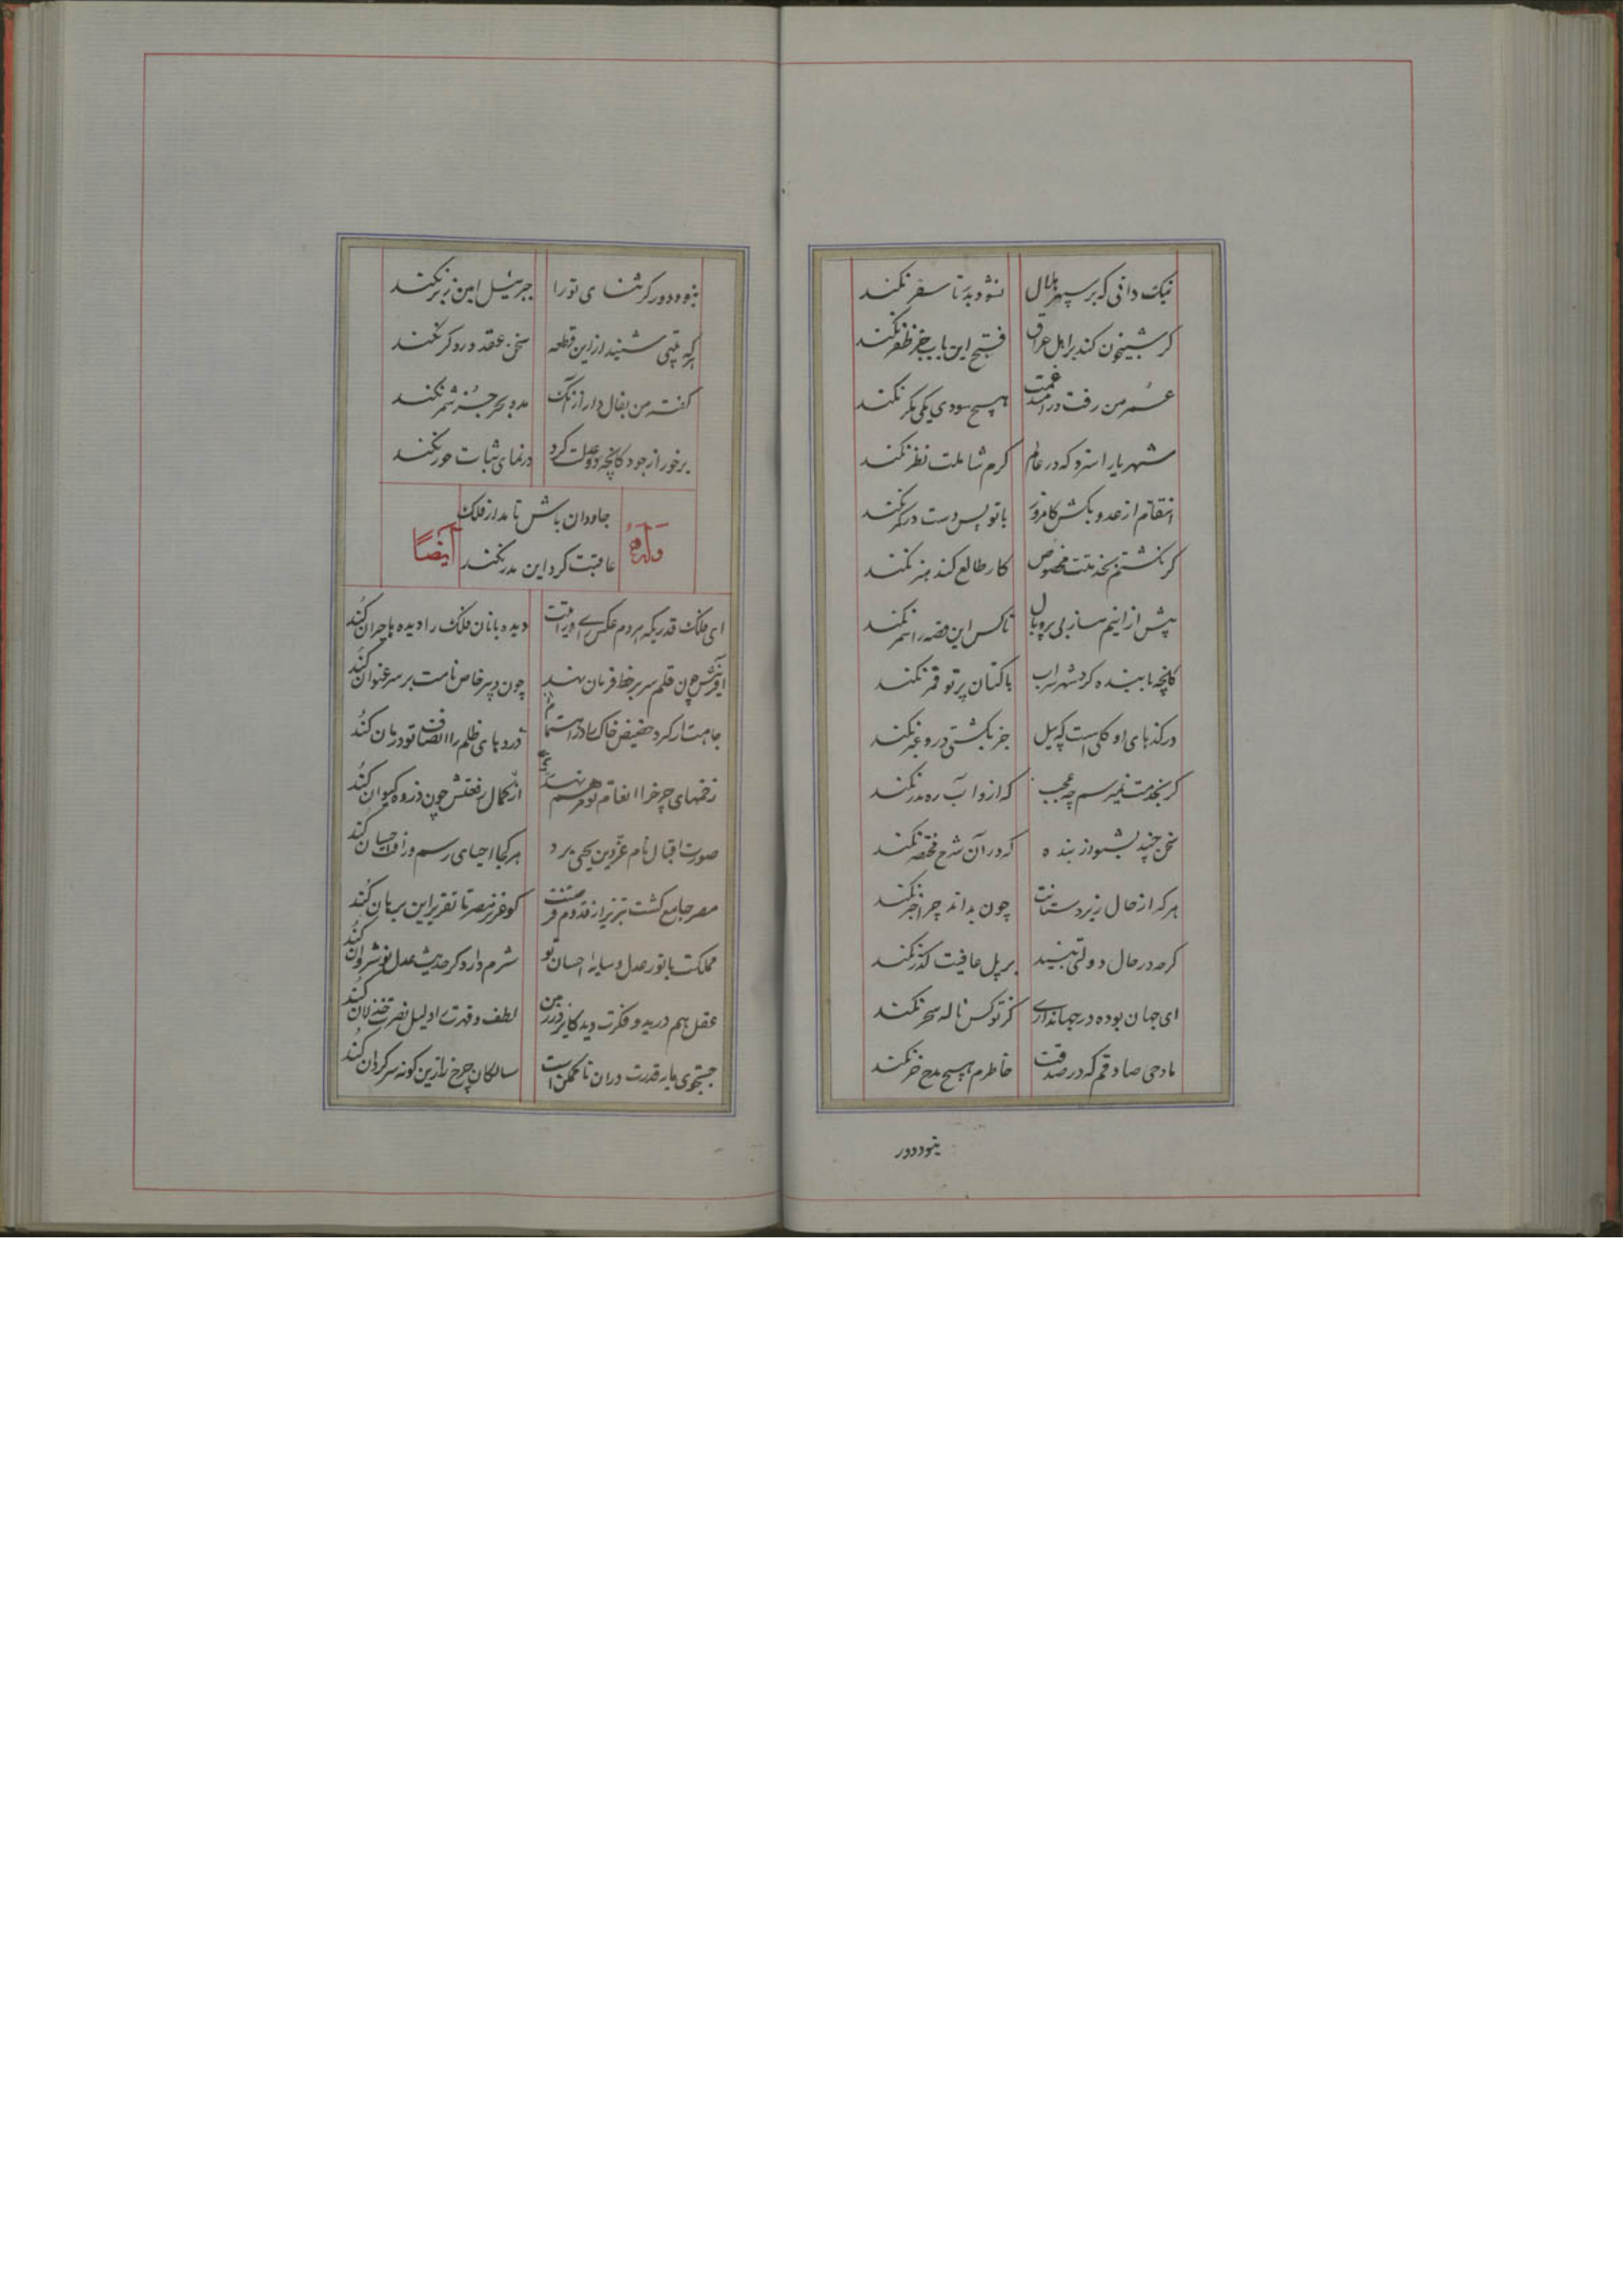 نیک دانی که بر سپهر هلال نشود بدر تا سفر نکند
کر شبیخون کند بر اهل عراق فتح این باب جز ظفر نکند
عمر من رفت در هیچ سودی یکی مکر نکند
شهریارا سزد که در عالم کرم شاملت نظر نکند
انتقام از عدو بکش کامروز با تو پس دست در کمر نکند
کر نکشتم بخدمتت مخصوص کار طالع کند هنر نکند
پیش ازاینم مساز بی پر و بال تا کس این قصه را سمر نکند
کانچه با بنده کرد شهراب با کتان پرتو قمر نکند
در کذبای او که پیل جز بکشتی درو عبر نکند
کر بخدمت نمیرسم چه عجب که از دو آب ره بدر نکند
سخن چند بشنو از بنده که در آن شرح مختصر نکند
هر که از حال زیردستانت چون بداند چرا خبر نکند
کر صد در حال دولتی بیند بر پل عافیت کذر نکند
ای جهان بوده در جهانداری کز تو کس ناله سحر نکند
مادحی صادقم که در صفت خاطرم هیچ مدح خر نکند
بنوددور
بنود دور کر ثنای تو را جبرئیل امین ز بر نکند
هر که بیتی شنید از این قطعه سخن عقد در و کر نکند
کفته من بفال دار از آنک مدد بحر جز شمر نکند
برخور از جود کانچه دولت کرد در نمای ثبات حور نکند
وله ایضاً
جاودان باش تا مدار فلک
عاقبت کرد این مدر نکند
ای فلک قدری که هر دم عکس رای انورت دیده بانان فلک را دیده ها حیران کند
آفرینش چون قلم سر بر خط فرمان نهد چون دبیر خاص نامت بر سر عنوان کند
جاهت ار کرد حضیض خاک را دردهای ظلم را انصاف تو درمان کند
زخمهای چرخ را انعام تو مرهم نهد از کمال رفعتش چون ذروه کیوان کند
صورت اقبال نام عز دین یحیی برد هر کجا احیای رسم و رافت احسان کند
مصر جامع کشت تبریز از قدوم کو عزیز مصر تا تقریر این برهان کند
مملکت با نور عدل و سایهٔ احسان تو شرم دارد کر حدیث عدل نوشروان کند
عقل هم در ید و فکرت دید کایزد لطف و قهرت را دلیل نصرت و خذلان کند
جستجوی پایه قدرت در آن ناممکن است سالکان چرخ را زین کونه سرکردان کند